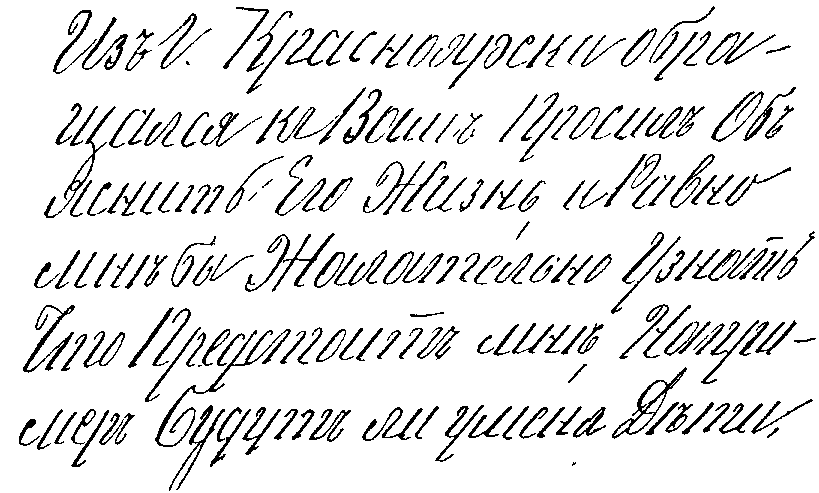 Изъ г. Красноярска обра-
щался къ Вамъ Просилъ Объ
яснить Его Жизнь, и Равно
мнѣ бы Жалательно Узнать
Что Предстоитъ мнѣ, Напри-
меръ будутъ ли у меня Дѣти,